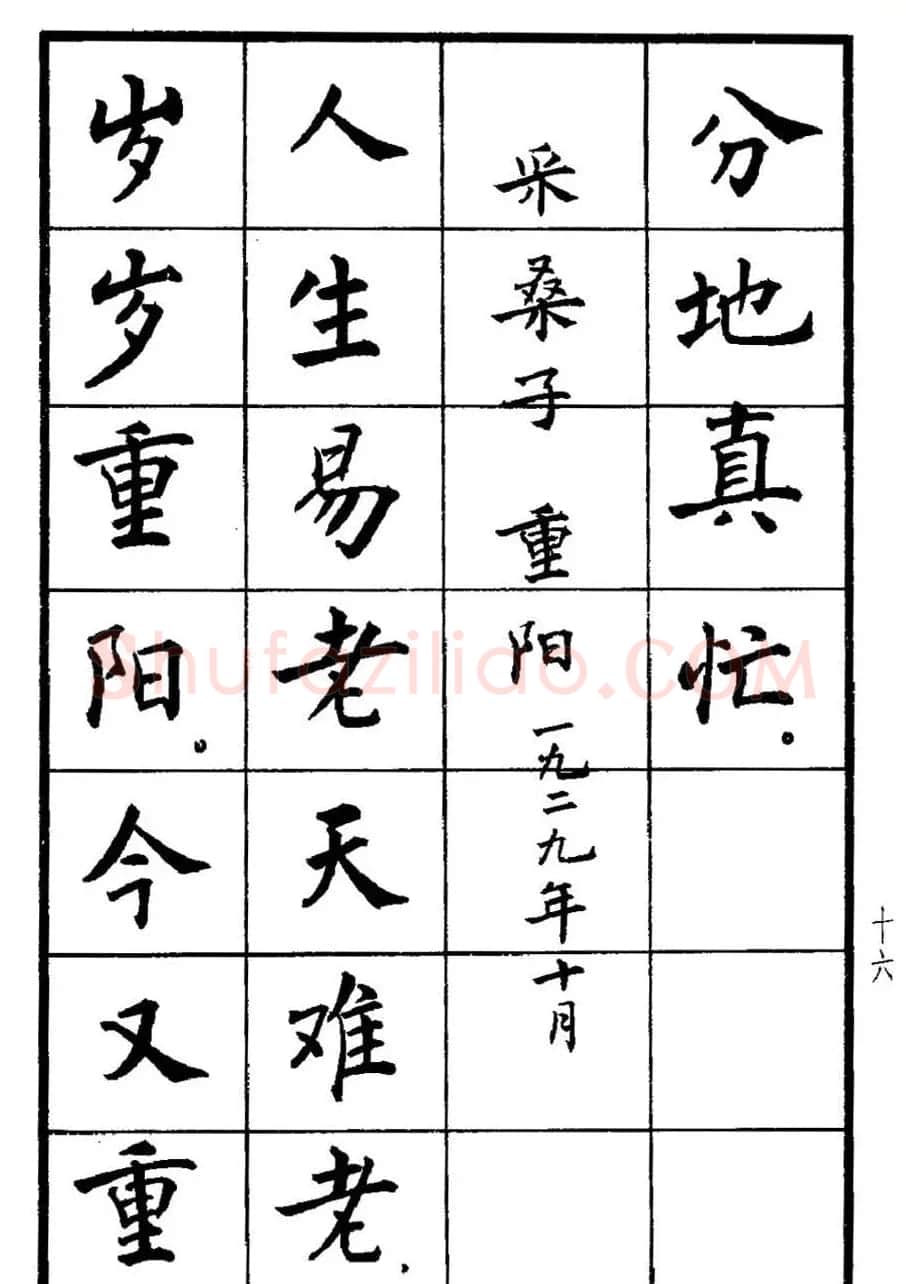 分地真忙。
采桑子 重阳 一九二九年十月
人生易老天难老，
岁岁重阳。今又重
十六
Shufaziliao.COM